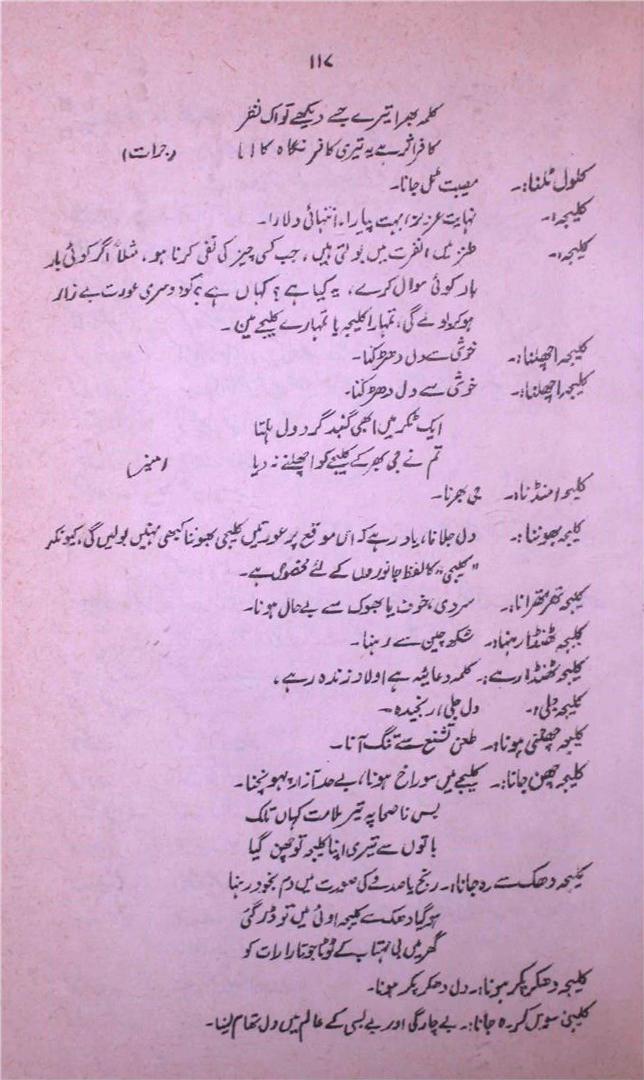 ۱۱۷
کلمہ بھرا تیرے جسے دیکھے تو اک نظر
کافر اثر ہے یہ تیری کافر نگاہ کا (جرات)
کلول ٹلنا:۔ مصیبت ٹل جانا۔
کلیجہ:۔ نہایت عزیز، بہت پیارا، انتہائی دلارا۔
کلیجہ:۔ طنز میں الفرت میں بولتی ہیں، جب کسی چیز کی نفی کرنا ہو، مثلاً اگر کوئی بار
بار کوئی سوال کرے، یہ کیا ہے؟ کہاں ہے؟ کو دوسری عورت بے زار
ہو کر بولے گی، تمہارا کلیجہ یا تمہارے کلیجے میں۔
کلیجہ اچھلنا:۔ خوشی سے دل دھڑکنا۔
کلیجہ اچھلنا:۔ خوشی سے دل دھڑکنا۔
ایک ٹکر میں ابھی گنبد گردوں ہلتا
تم نے جی بھر کے کلیجے کو اچھلنے نہ دیا (منیر)
کلیجہ امنڈنا:۔ جی بھرنا۔
کلیجہ بھوننا:۔ دل جلانا، یاد رہے کہ اس موقع پر عورتیں کلیجی بھوننا کبھی نہیں بولیں گی، کیونکہ
"کلیجی" کا لفظ جانوروں کے لئے مخصوص ہے۔
کلیجہ تھر تھرانا:۔ سردی، خوف یا بھوک سے بے حال ہونا۔
کلیجہ ٹھنڈا رہنا:۔ سکھ چین سے رہنا۔
کلیجہ ٹھنڈا رہے:۔ کلمہ دعائیہ ہے اولاد زندہ رہے،
کلیجہ جلی:۔ دل جلی، رنجیدہ۔
کلیجہ چھلنی ہونا:۔ طعن تشنیع سے تنگ آنا۔
کلیجہ چھن جانا:۔ کلیجے میں سوراخ ہونا، بے حد آزار پہونچنا۔
بس ناصحا یہ تیر ملامت کہاں تلک
باتوں سے تیری اپنا کلیجہ تو چھن گیا
کلیجہ دھک سے رہ جانا:۔ رنج یا صدمے کی صورت میں دم بخود رہنا
ہو گیا دھک سے کلیجہ اوئی میں تو ڈر گئی
گھر میں بی مہتاب کے ٹوٹا جو تارا رات کو
کلیجہ دھکر پکر ہونا:۔ دل دھکر پکر ہونا۔
کلیجہ مسوس کر رہ جانا:۔ بے چارگی اور بے بسی کے عالم میں دل تھام لینا۔